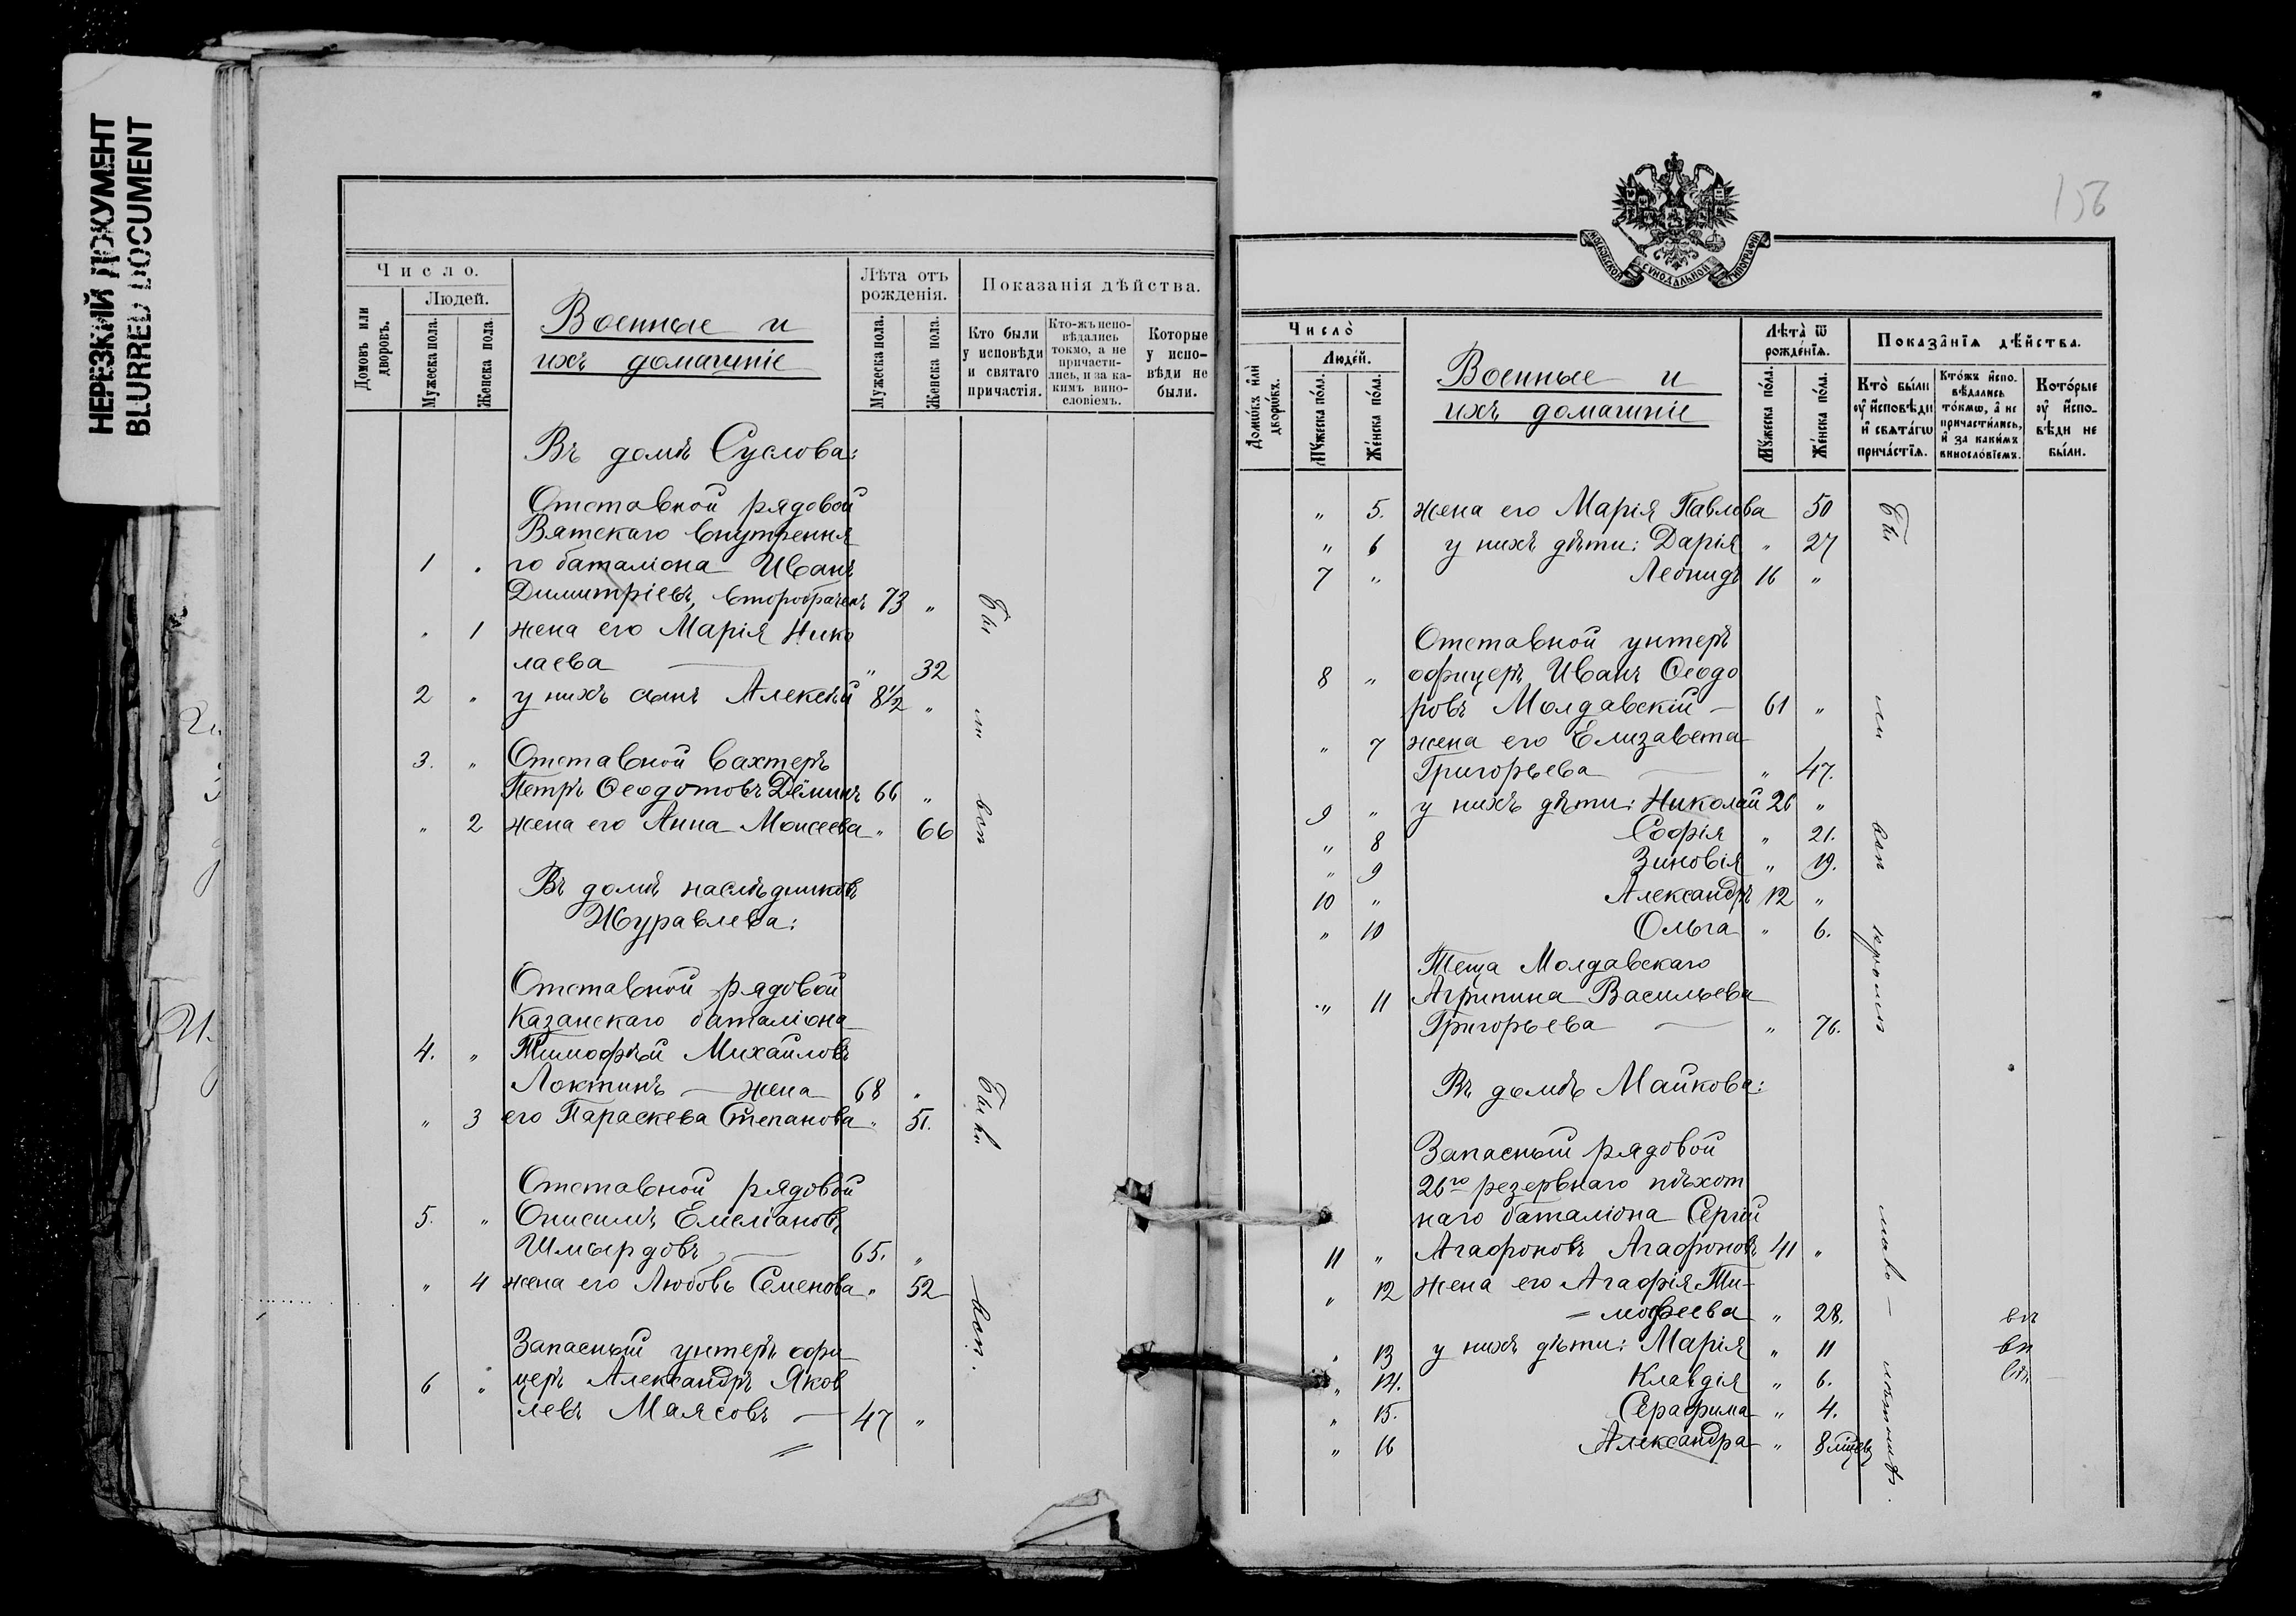 НЕРЕЗКИЙ ДОКУМЕНТ
BLURRED DOCUMENT
Число.
Домовъ или дворовъ.
Людей.
Мужеска пола.
Женска пола.
Военные и
ихъ домашніе
Лѣта отъ рожденія.
Мужеска пола.
Женска пола.
Показанія дѣйства.
Кто были у исповѣди и святаго причастія.
Кто-жъ исповѣдались токмо, а не причастились, и за какимъ винословіемъ.
Которые у исповѣди не были.
Въ домѣ Суслова:
Отставной рядовой
Вятскаго внутрення
1 " го баталіона Иванъ
Димитріевъ, второбраченъ 73 "
" 1 жена его Марія Нико
лаева — " 32
2 " у нихъ сынъ Алексѣй 8½ "
3. " Отставной вахтеръ
Петръ Ѳеодотовъ Дёминъ 66 "
" 2 жена его Анна Моисеева " 66
Въ домѣ наслѣдниковъ
Журавлева:
Отставной рядовой
Казанскаго баталіона
4. " Тимофѣй Михайловъ
Локтинъ — жена 68 "
" 3 его Параскева Степанова " 51.
Отставной рядовой
5. " Онисимъ Емеліановъ
Шмырдовъ — 65. "
" 4 жена его Любовь Семенова " 52
Запасный унтеръ офи
6 " церъ Александръ Яков
левъ Маясовъ — 47 "
156
МОСКОВСКОЙ СѴНОДАЛЬНОЙ ТИПОГРАФІИ
Число̀
Домѡ́въ и҆лѝ дворѡ́въ.
Люде́й.
Мꙋ́жеска по́ла.
Же́нска по́ла.
Военные и
ихъ домашніе
Лѣта̀ ѿ рожде́нїѧ.
Мꙋ́жеска по́ла.
Же́нска по́ла.
Показа̑нїѧ дѣ́йства.
Кто̀ бы́ли ᲂу҆ и҆сповѣди и҆ свѧта́гѡ прича́стїѧ.
Кто́жъ и҆сповѣдались то́кмѡ, а҆ не причасти́лись, и҆ за каки́мъ виносло́вїемъ.
Кото́рые ᲂу҆ и҆сповѣди не бы́ли.
" 5. жена его Марія Павлова 50
" 6 у нихъ дѣти: Дарія " 27
7 " Леонидъ 16 "
Отставной унтеръ
8 " офицеръ Иванъ Ѳеодо
ровъ Молдавскій — 61 "
" 7 жена его Елизавета
Григорьева — " 47.
9 " у нихъ дѣти: Николай 26 "
" 8 Софія " 21.
" 9 Зиновія " 19.
10 " Александръ 12 "
" 10 Ольга " 6.
Теща Молдавскаго
" 11 Агрипина Васильева
Григорьева — " 76.
Въ домѣ Майкова:
Запасный рядовой
26го резервнаго пѣхот
наго баталіона Сергій
11 " Агафоновъ Агафоновъ 41 "
" 12 жена его Агафія Ти-
= мофеева " 28.
" 13 у нихъ дѣти: Марія " 11
" 14. Клавдія " 6.
" 15. Серафима " 4.
" 16 Александра " 8 міцев